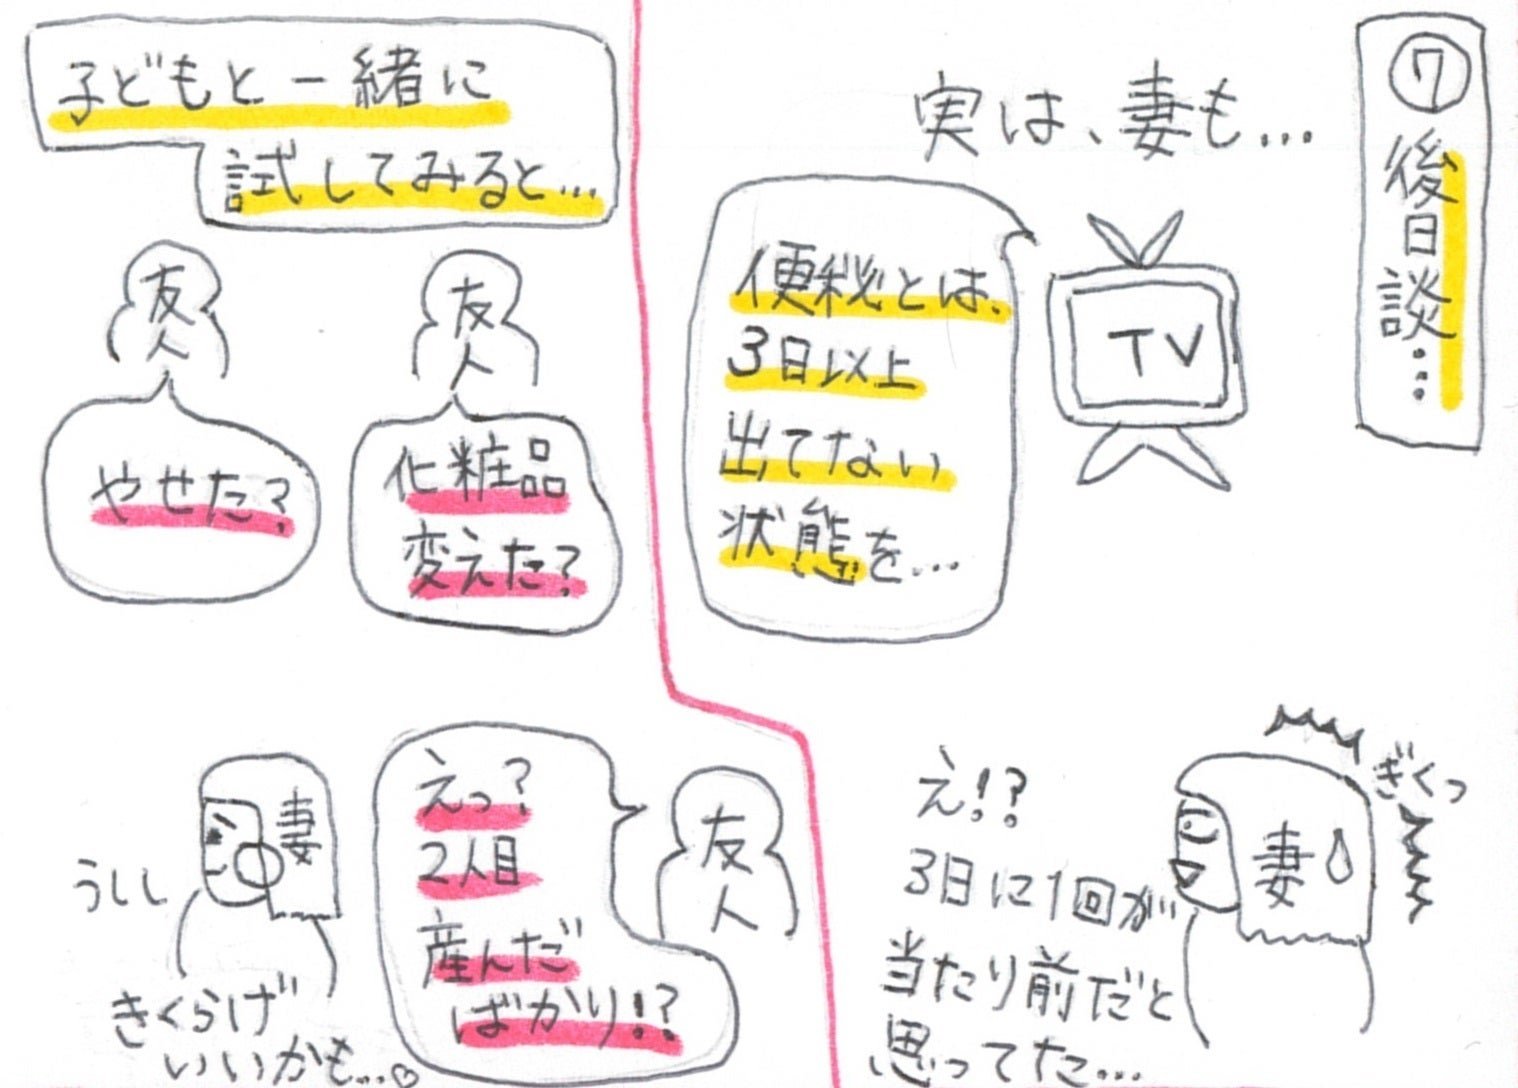 ⑦後日談…
実は、妻も…
便秘とは、
3日以上
出てない
状態を…
TV
ぎくっ
え!?
3日に1回が
当たり前だと
思ってた…
妻
子どもと一緒に
試してみると…
友人
化粧品
変えた?
友人
やせた?
友人
えっ?
2人目
産んだ
ばかり!?
妻
うしし
きくらげ
いいかも…♡